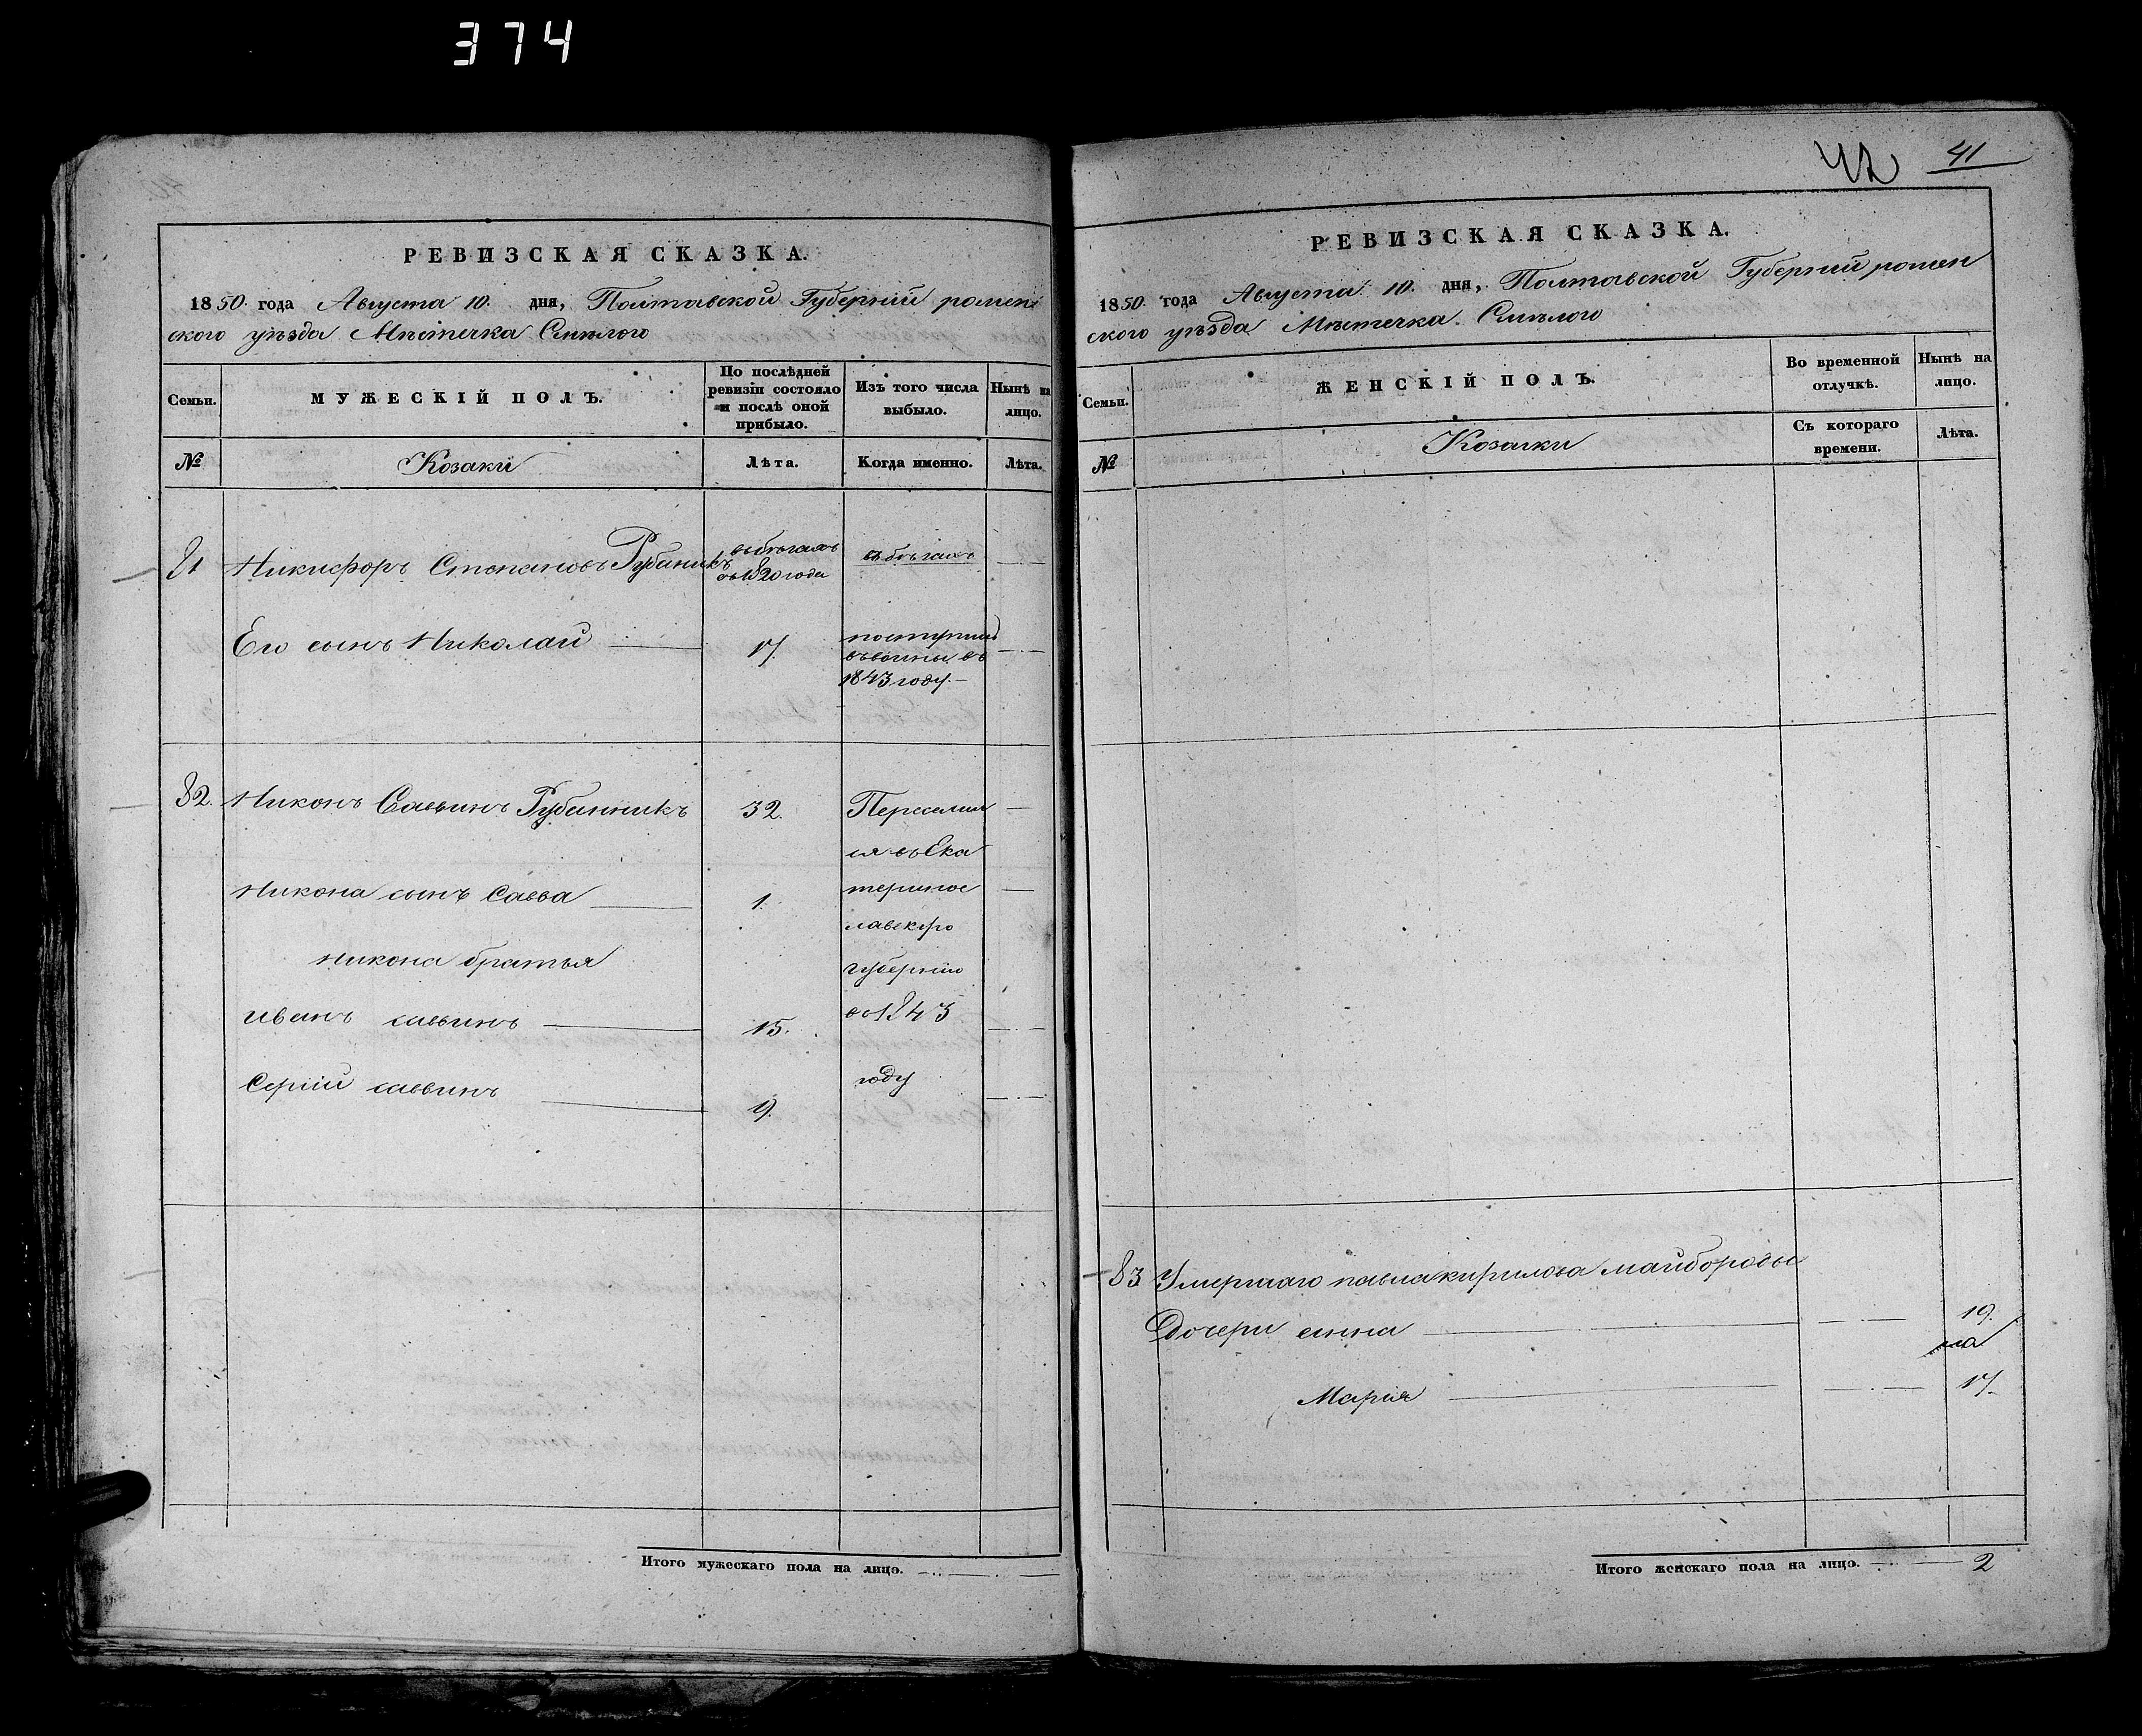 374
РЕВИЗСКАЯ СКАЗКА.
1850 года Августа 10. дня, Полтавской Губерніи ромен
ского уѣзда Мѣстечка Смѣлого
Семьи.
МУЖЕСКІЙ ПОЛЪ.
По послѣдней
ревизіи состояло
и послѣ оной
прибыло.
Изъ того числа
выбыло.
Нынѣ на
лицо.
№
Козаки
Лѣта.
Когда именно.
Лѣта.
81 Никифоръ Степановъ Рубаникъ
въ бѣгахъ
съ 1820 года
въ бѣгахъ
Его сынъ Николай 17.
поступилъ
въ
въ
1843 году.
82. Никонъ Саввинъ Рубанникъ 32. Переселил
ся въ Ека
Никона сынъ Савва 1. теринос
лавскую
Никона братья губернію
Иванъ саввинъ 15. во 1843
Сергій саввинъ 9. году
Итого мужескаго пола на лицо.
42 41
РЕВИЗСКАЯ СКАЗКА.
1850. года Августа 10. дня, Полтавской Губерніи ромен
ского уѣзда Мѣстечка Смѣлого
Семьи.
ЖЕНСКІЙ ПОЛЪ.
Во временной
отлучкѣ.
Нынѣ на
лицо.
№
Козачки
Съ котораго
времени.
Лѣта.
83 Умершаго павла кирилова майбороды
Дочери анна 19.
Марія 17.
Итого женскаго пола на лицо. 2